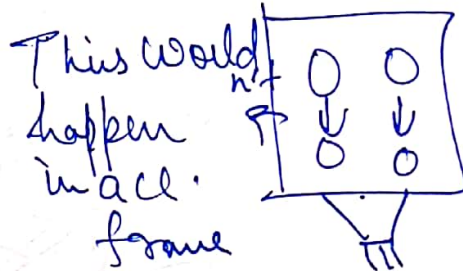 This would
n't
happen
in acc.
frame